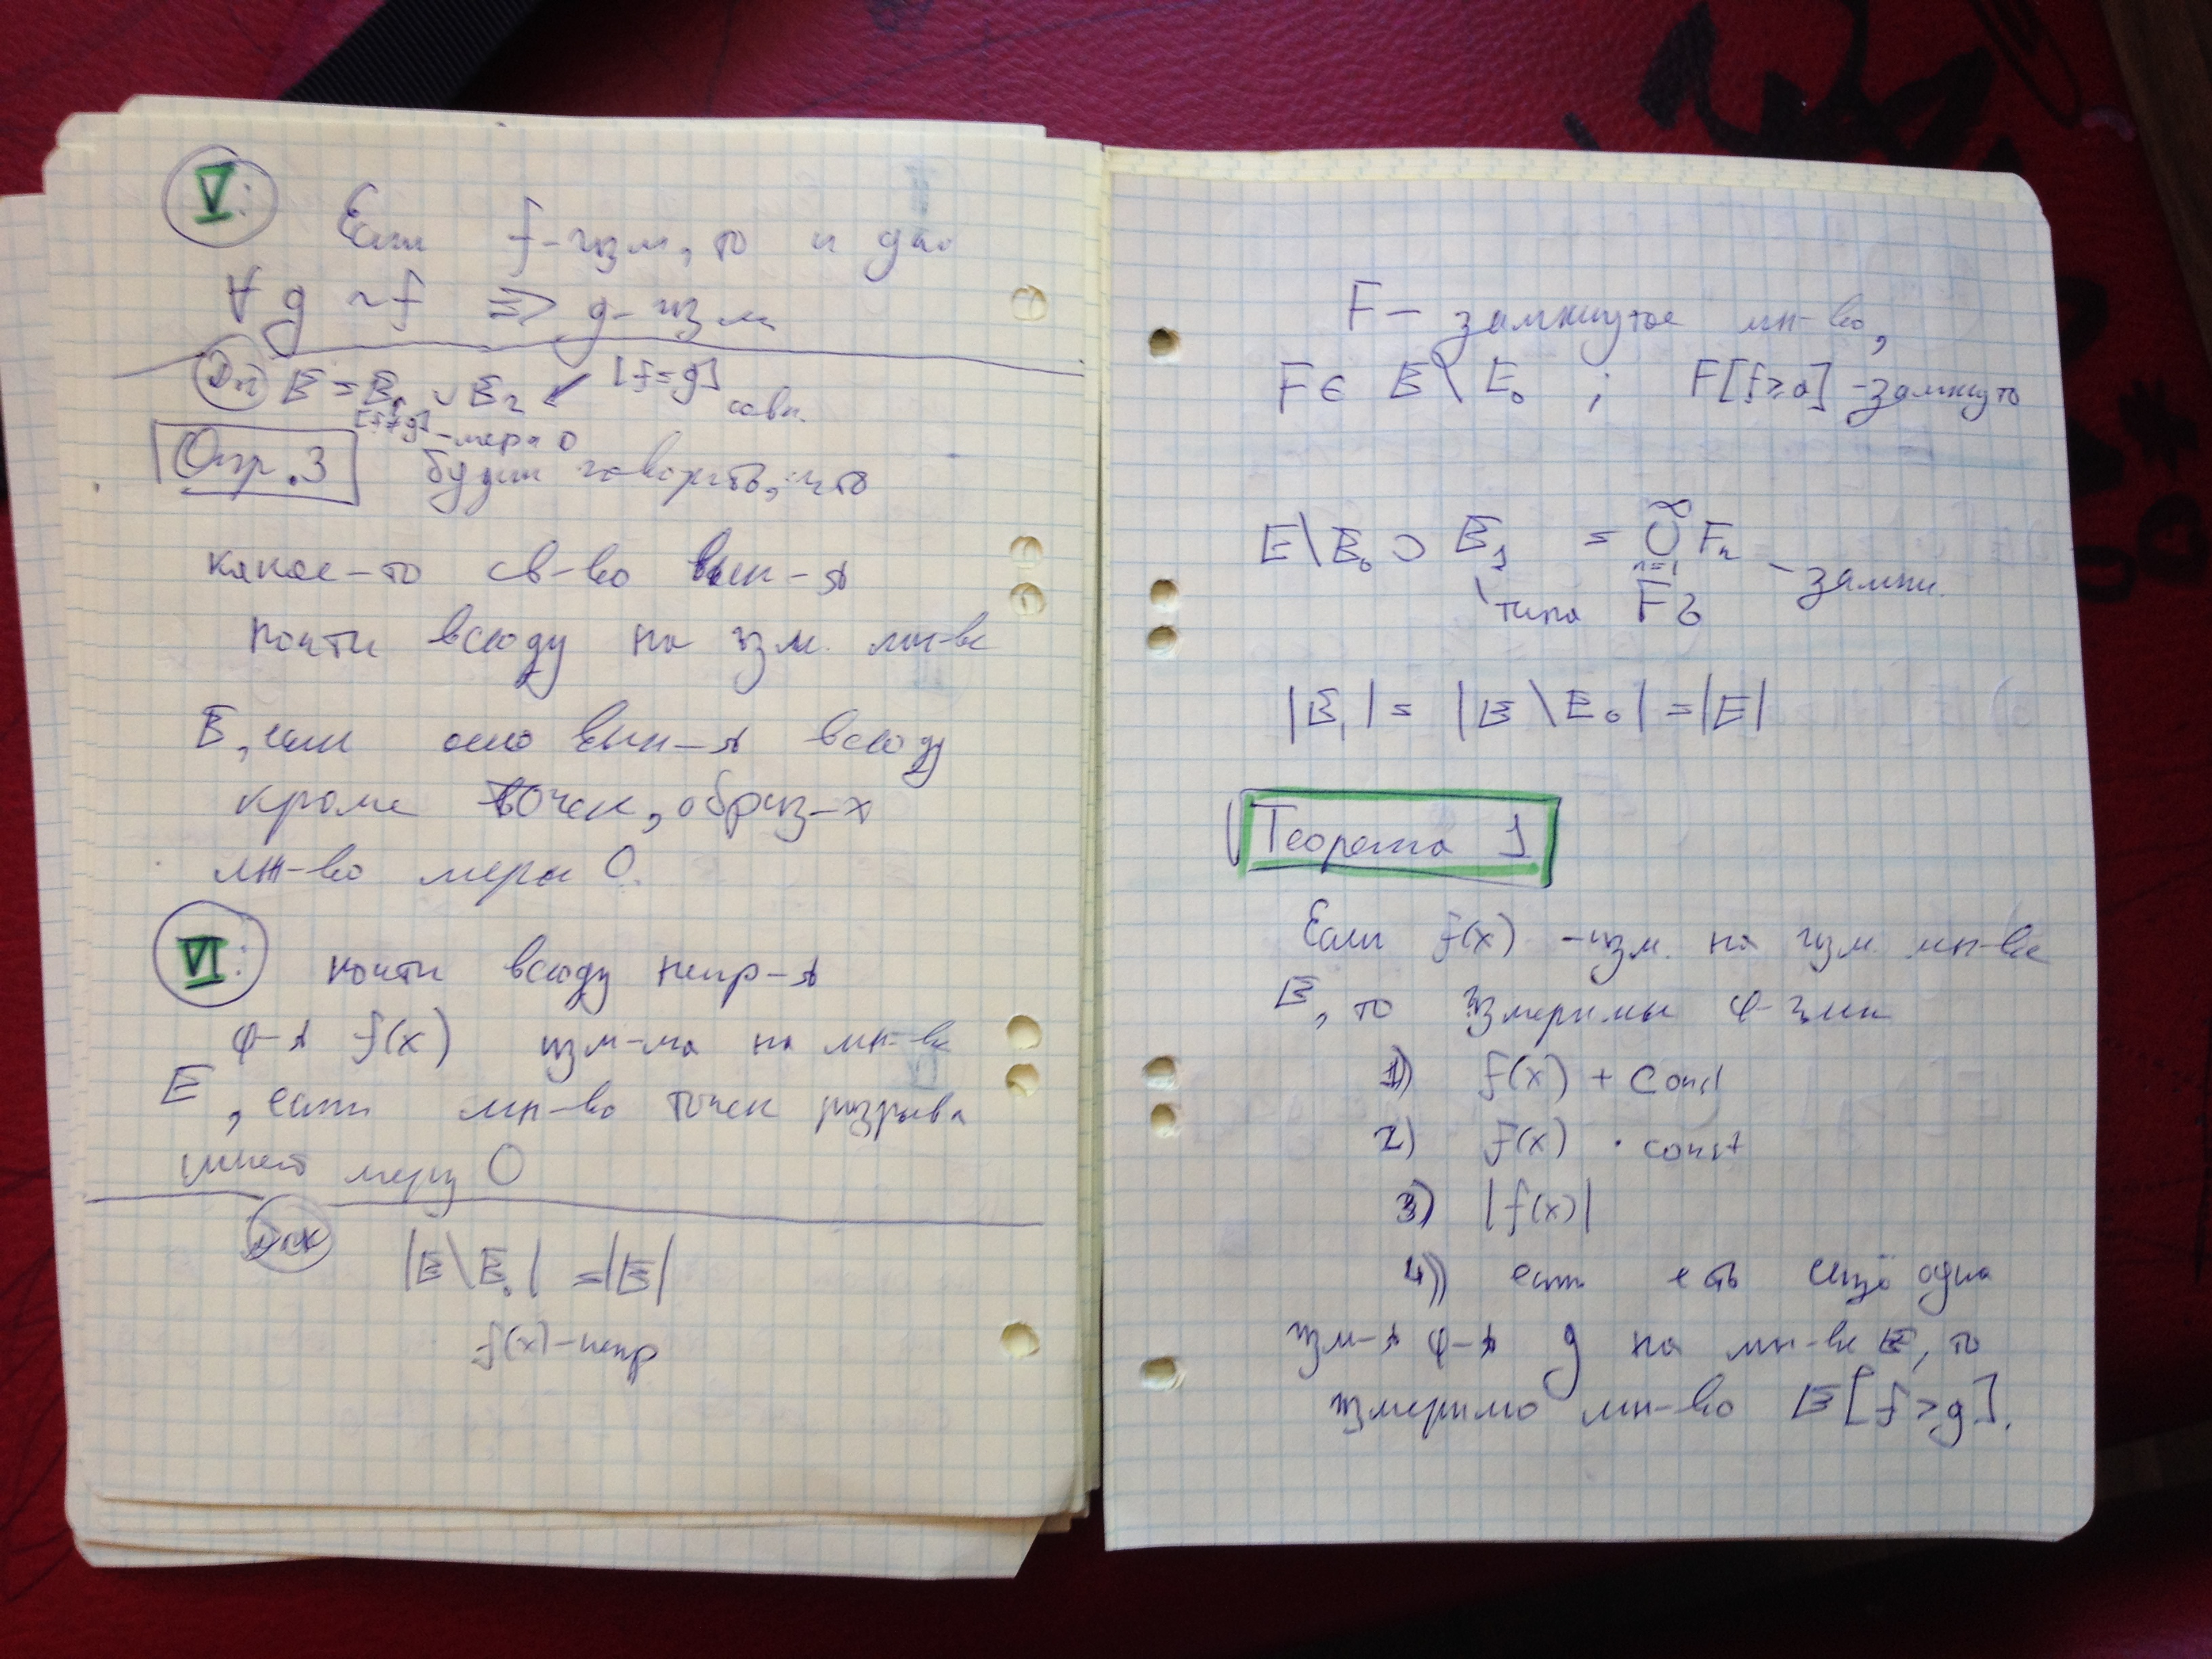 V:
Если f-изм, то и для
∀ g ~ f ⇒ g-изм
E = E₁ ∪ E₂ ↙ [f=g] совп.
[f≠g] -мера 0
Опр.3 будем говорить, что
какое-то св-во вып-я
почти всюду на изм. мн-ве
E, если оно вып-я всюду
кроме точек, образ-х
мн-во меры 0.
VI:
почти всюду непр-я
ф-я f(x) изм-ма на мн-ве
E, если мн-во точек разрыва
имеет меру 0
Док
|E\E₀| = |E|
f(x)-непр
F – замкнутое мн-во,
F∈ E\E₀ ; F[f≥a] -замкнуто
E\E₀ ⊃ E₁ = ∞ ∪ n=1 Fₙ -замкн.
типа Fσ
|E₁| = |E\E₀| = |E|
Теорема 1
Если f(x) -изм. на изм. мн-ве
E, то измеримы ф-ции
1) f(x) + const
2) f(x) · const
3) |f(x)|
4) если есть ещё одна
изм-я ф-я g на мн-ве E, то
измеримо мн-во E[f>g].